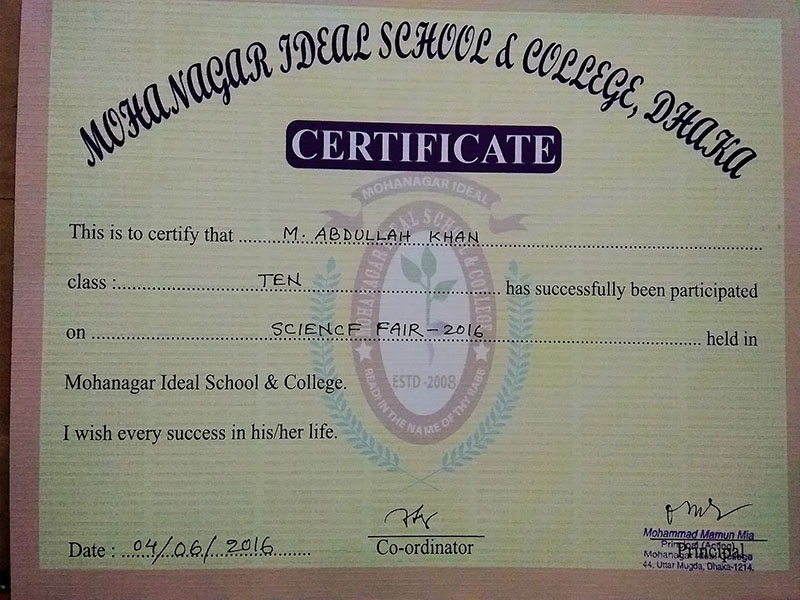 MOHANAGAR IDEAL SCHOOL & COLLEGE, DHAKA
CERTIFICATE
MOHANAGAR IDEAL
MOHANAGAR IDEAL SCHOOL & COLLEGE
ESTD -2008
READ IN THE NAME OF THY RABB
This is to certify that M. ABDULLAH KHAN
class : TEN has successfully been participated
on SCIENCE FAIR-2016 held in
Mohanagar Ideal School & College.
I wish every success in his/her life.
Date : 04/06/2016
Co-ordinator
Principal
Mohammad Mamun Mia
Principal (Acting)
Mohanagar Ideal College
44, Uttar Mugda, Dhaka-1214.